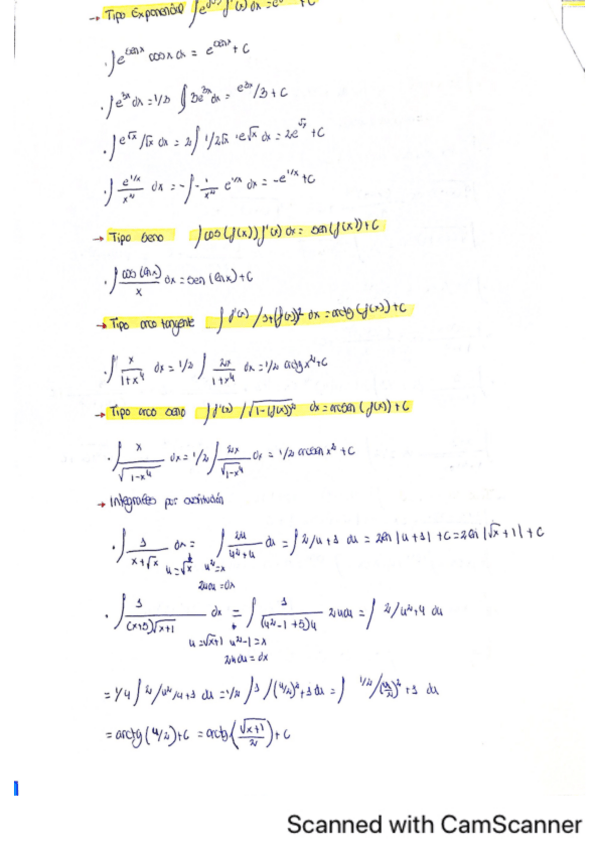 → Tipo Exponencial ∫e f'(x) dx = e + C
· ∫e^senx cosx dx = e^senx + C
· ∫e^3x dx = 1/3 ∫3e^3x dx = e^3x/3 + C
· ∫e^√x/√x dx = 2∫1/2√x · e^√x dx = 2e^√x + C
· ∫ e^1/x / x² dx = -∫ -1/x² e^1/x dx = -e^1/x + C
→ Tipo seno ∫cos(f(x)) f'(x) dx = sen(f(x)) + C
· ∫ cos(lnx)/x dx = sen(lnx) + C
→ Tipo arco tangente ∫f'(x) / 1+(f(x))² dx = arctg(f(x)) + C
· ∫ x/1+x⁴ dx = 1/2 ∫ 2x/1+x⁴ dx = 1/2 arctg x² + C
→ Tipo arco seno ∫f'(x) / √1-(f(x))² dx = arcsen(f(x)) + C
· ∫ x/√1-x⁴ dx = 1/2 ∫ 2x/√1-x⁴ dx = 1/2 arcsen x² + C
→ Integrales por sustitución
· ∫ 1/x+√x dx = ∫ 2u/u²+u du = ∫2/u+1 du = 2ln|u+1| + C = 2ln|√x+1| + C
u=√x u²=x
2udu=dx
· ∫ 1/(x+5)√x+1 dx = ∫ 1/(u²-1+5)u 2udu = ∫ 2/u²+4 du
u=√x+1 u²-1=x
2udu=dx
= 1/4 ∫2/u²/4+1 du = 1/2 ∫1/(u/2)²+1 du = ∫ 1/2/(u/2)²+1 du
= arctg(u/2)+C = arctg(√x+1/2)+C
Scanned with CamScanner